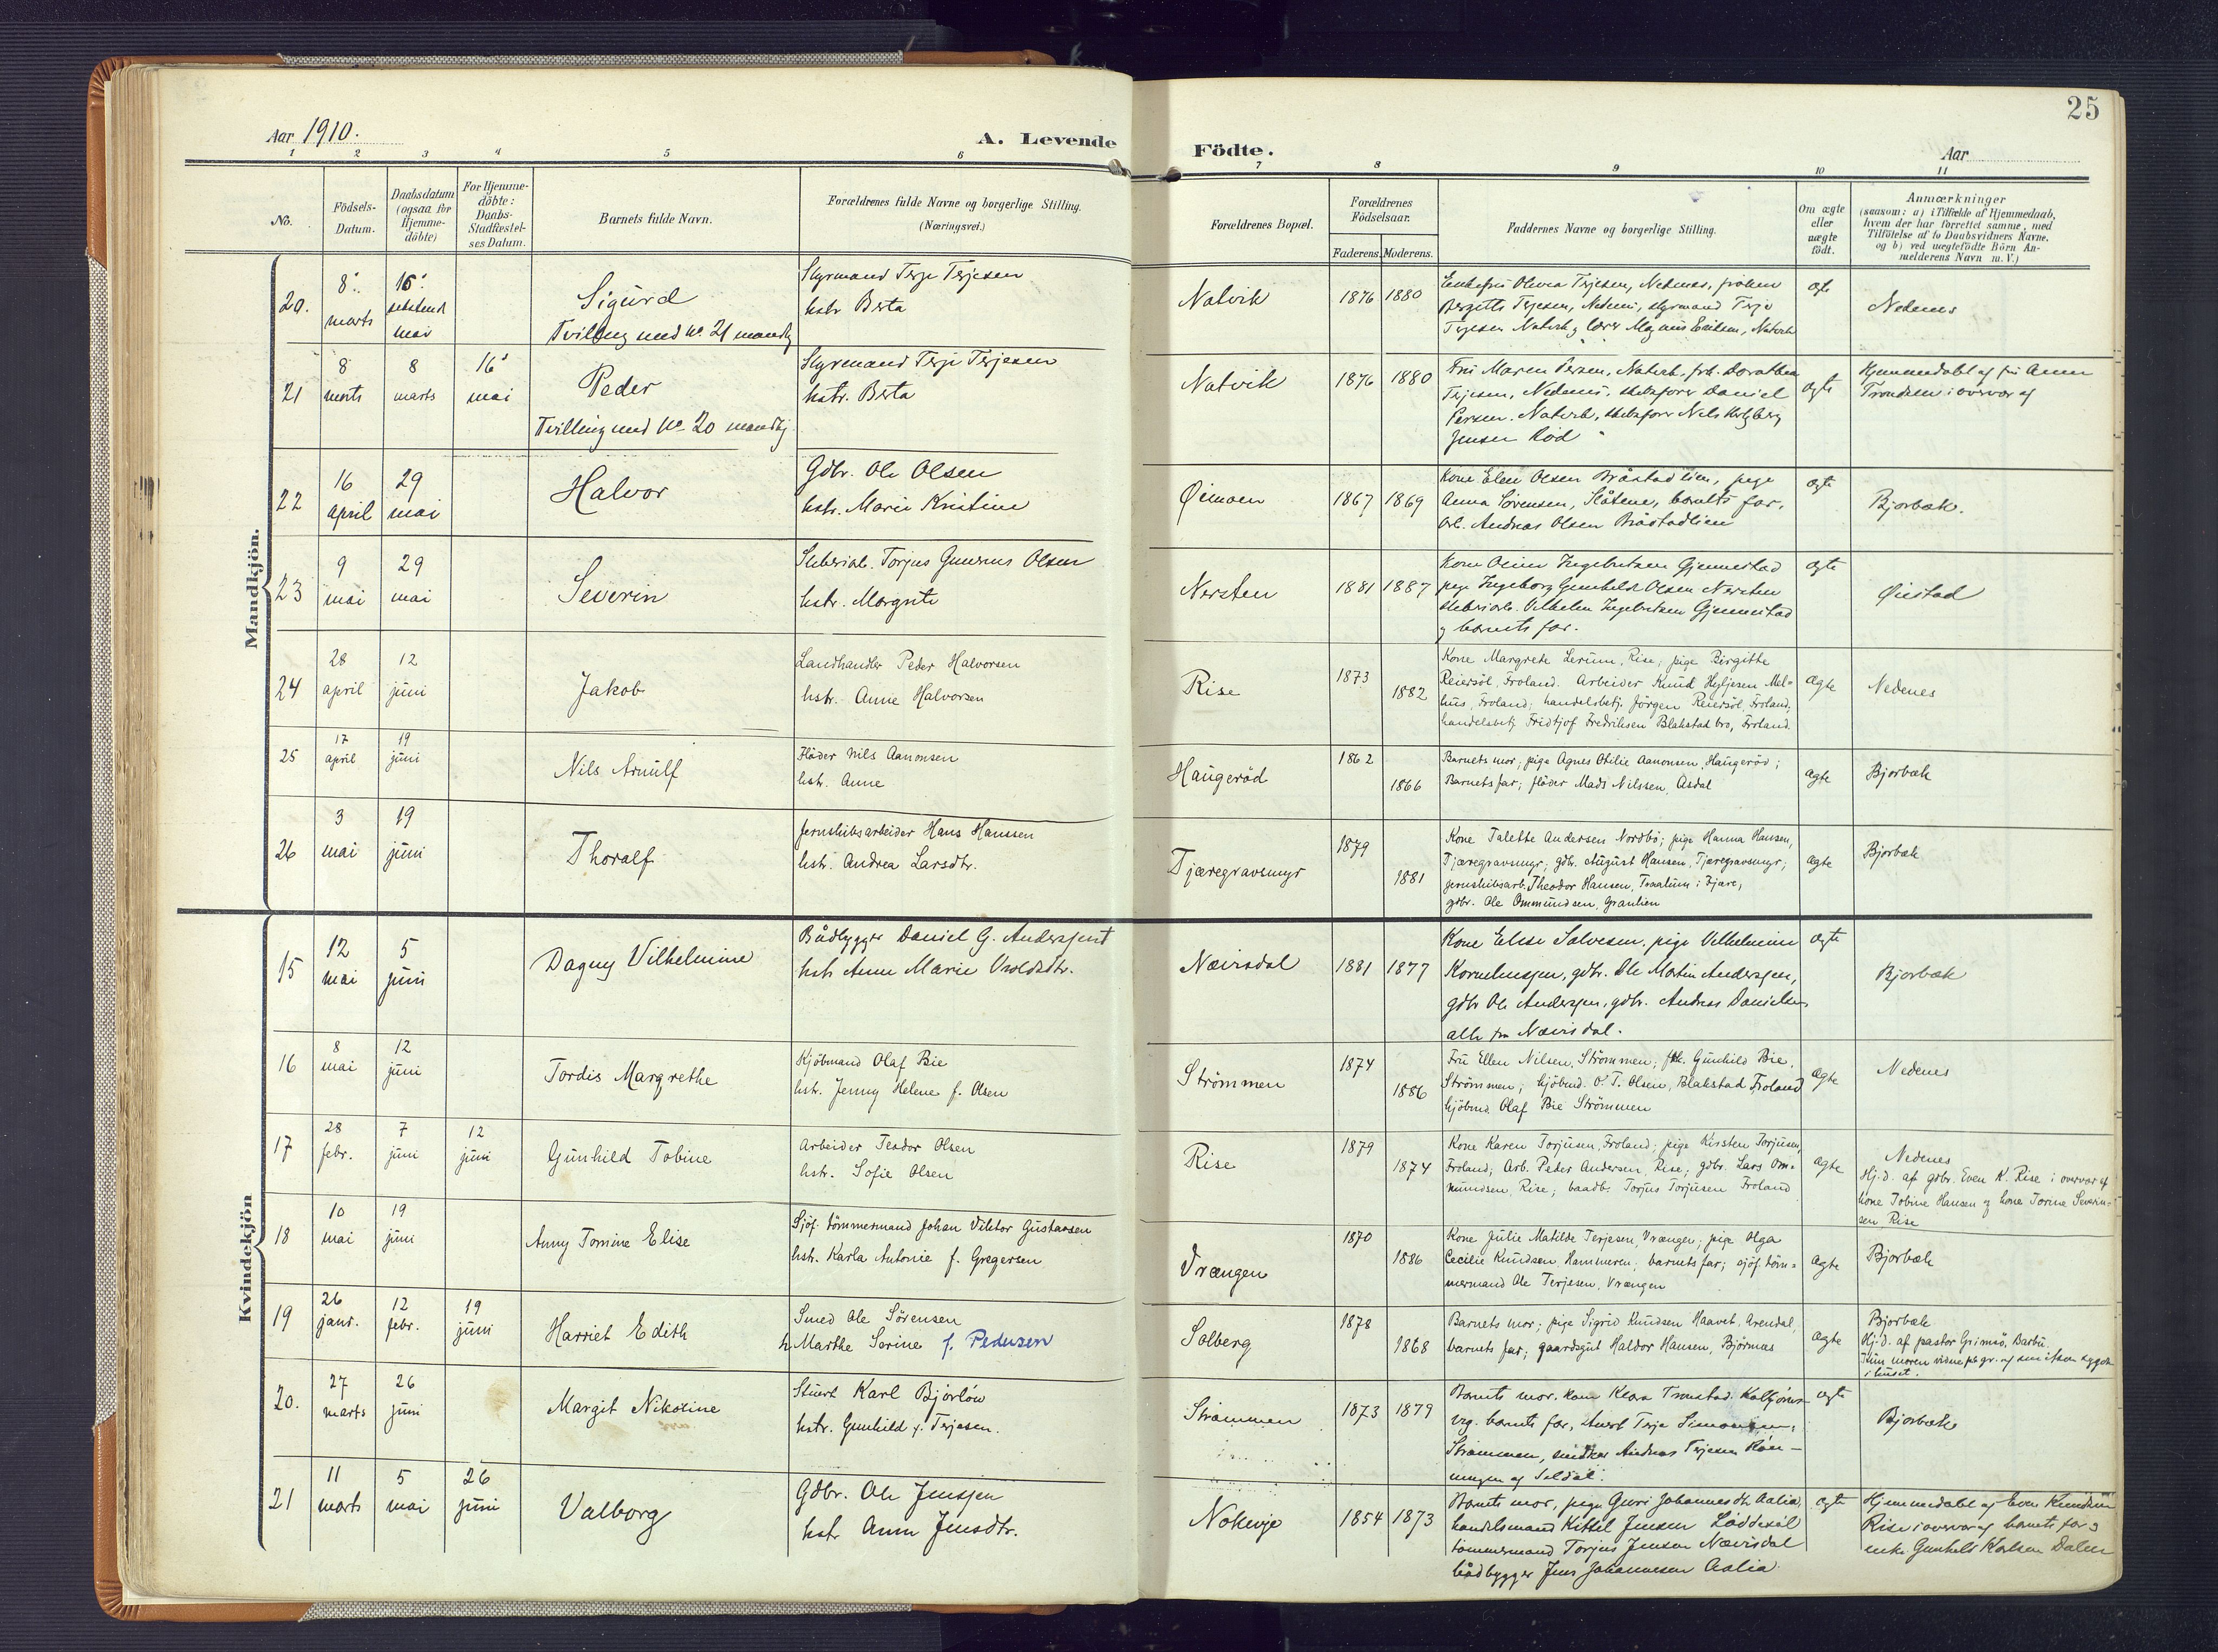 25
Aar 1910.
A. Levende Födte.
Aar
1 2 3 4 5 6 7 8 9 10 11
No.
Födsels-Datum.
Daabsdatum (ogsaa for Hjemme-döbte)
For Hjemme-döbte: Daabs-Stadfæstel-ses Datum.
Barnets fulde Navn.
Forældrenes fulde Navne og borgerlige Stilling.
(Næringsvei.)
Forældrenes Bopæl.
Forældrenes Födselsaar.
Faderens. Moderens.
Faddernes Navne og borgerlige Stilling.
Om ægte eller uægte födt.
Anmærkninger
(saasom: a) i Tilfælde af Hjemmedaab,
hvem der har forrettet samme, med
Tilföielse af to Daabsvidners Navne,
og b) ved uægtefödte Börn An-
melderens Navn m. V.)
Mandkjön.
20. 8. marts 16. mai
Sigurd
Tvilling med No. 21 mandkj
Styrmand Terje Terjesen
hstr Berta
Natvik 1876 1880
Terjesen, Nedenes, styrmand Terje
Terjesen Natvik, Natvik
ægte
Nedenes
21 8 marts 8 marts 16 mai
Peder
Tvilling med No 20 mandkj.
Styrmand Terje Terjesen
hstr. Berta
Natvik 1876 1880
Fru Maren Persen, Natvik, frk. Dorothea
Terjesen, Nedenes, skibsfører Daniel
Persen. Natvik, skibsfører Nils
Jensen Rød
ægte
Hjemmedøbt af fru Anna
Trondsen i overvær af
22 16 april 29 mai
Halvor
Gdbr. Ole Olsen
hstr. Marie Kristine
Øimoen 1867 1869
Kone Elen Olsen Bråstadlien, pige
Anna Sørensen, Slåtene, barnets far,
Arb. Andreas Olsen Bråstadlien
ægte
Bjorbæk.
23 9 mai 29 mai
Severin
Sliberiarb. Torjus Gunerius Olsen
hstr. Margrete
Nersten 1881 1887
Kone Ingebretsen Gjennestad
pige Ingeborg Gunhild Olsen Nersten
sliberiarb. Vilhelm Ingebretsen Gjennestad
og barnets far.
ægte
Øiestad
24 28 april 12 juni
Jakob
Landhandler Peder Halvorsen
hstr. Anne Halvorsen
Rise 1873 1882
Kone Margrete Lerum, Rise; pige Birgitte
Reiersöl, Froland. Arbeider Knud Hyljesen Mel-
hus, Froland; handelsbetj. Jörgen Reiersöl, Froland;
handelsbetj. Fridtjof Fredriksen Blakstad bro, Froland.
ægte
Nedenes
25 17 april 19 juni
Nils Arnulf
Flöder Nils Aanonsen
hstr. Anne
Haugeröd 1862 1866
Barnets mor; pige Agnes Otilie Aanonsen, Haugeröd;
Barnets far; flöder Mads Nilssen, Asdal
ægte
Bjorbæk
26 3 mai 19 juni
Thoralf
Jernskibsarbeider Hans Hanssen
hstr. Andrea Larsdtr.
Tjæregravsmyr 1879 1881
Kone Talette Andersen Nordbö; pige Hanna Hansen,
Tjæregravsmyr; gdbr. August Hansen, Tjæregravsmyr;
jernskibsarb. Theodor Hansen,
gdbr. Ole Ommundsen, Granlien
ægte
Bjorbæk
Kvindekjön
15 12 mai 5 juni
Dagny Vilhelmine
Bådbygger Daniel G. Andersen
hstr Anne Marie
Nævisdal 1881 1877
Kone Elise Salvesen, pige Vilhelmine
Korneliussen, gdbr. Ole Martin Andersen,
gdbr Ole Andersen, gdbr. Andreas Danielsen
alle fra Nævisdal.
ægte
Bjorbæk
16 8 mai 12 juni
Tordis Margrethe
Kjöbmand Olaf Bie
hstr. Jenny Helene f. Olsen
Strömmen 1874 1886
Fru Ellen Nilsen, Strömmen; frk. Gunhild Bie,
Strömmen; kjöbmd. O. T. Olsen, Blakstad Froland
kjöbmd. Olaf Bie Strömmen
ægte
Nedenes
17 28 febr. 7 juni 12 juni
Gunhild Tobine
Arbeider Teodor Olsen
hstr. Sofie Olsen
Rise 1879 1874
Kone Karen Torjusen, Froland; pige Kirsten Torjusen,
Froland; Arb. Peder Andersen, Rise; gdbr. Lars Om-
mundsen, Rise; baadb. Torjus Torjusen Froland
ægte
Nedenes
Hj.d. af gdbr. Even K. Rise i overvær af
kone Tobine Hansen og kone Tomine Severin-
sen, Rise
18 10 mai 19 juni
Anny Tomine Elise
Sjöf. tömmermand Johan Viktor Gustavsen
hstr. Karla Antonie f. Gregersen
Vrængen 1870 1886
Kone Julie Matilde Terjesen, Vrængen; pige Olga
Cecilie Knudsen, Hammeren; barnets far; sjöf. töm-
mermand Ole Terjesen, Vrængen
ægte
Bjorbæk
19 26 janr. 12 febr. 19 juni
Harriet Edith
Smed Ole Sörensen
h. Marthe Serine f. Pedersen
Solberg 1878 1868
Barnets mor; pige Sigrid Knudsen Haavet, Arendal,
barnets far; gaardsgut Haldor Hansen, Björmas
ægte
Bjorbæk
Hj.d. af pastor Grimsö, Barbu.
Kun moren vidne på gr. af smitsom sygdom
i huset.
20. 27 marts 26 juni
Margit Nikoline
Stuert Karl Bjorløw
hstr. Gunhild f. Terjesen.
Strømmen 1873 1879
Barnets mor, kone Klara Tronstad
barnets far, stuert Terje Simonsen,
Strømmen, snedker Andreas Terjesen Røn-
ningen af Seldal.
ægte
Bjorbæk
21 11 marts 5 mai 26 juni
Valborg
Gdbr. Ole Jenssen
hstr Anne Jensdtr.
Nokevje 1854 1873
Barnets mor, pige Guri Johannesdtr. Aalia,
handelsmand Kittel Jensen Løddesøl
tømmermand Torjus Jensen Nævisdal
bådbygger Jens Johannesen Aalia
ægte
Hjemmedøbt af Even Knudsen
Rise i overvær af barnets far og
enke Gunhild Karlsen Dalen